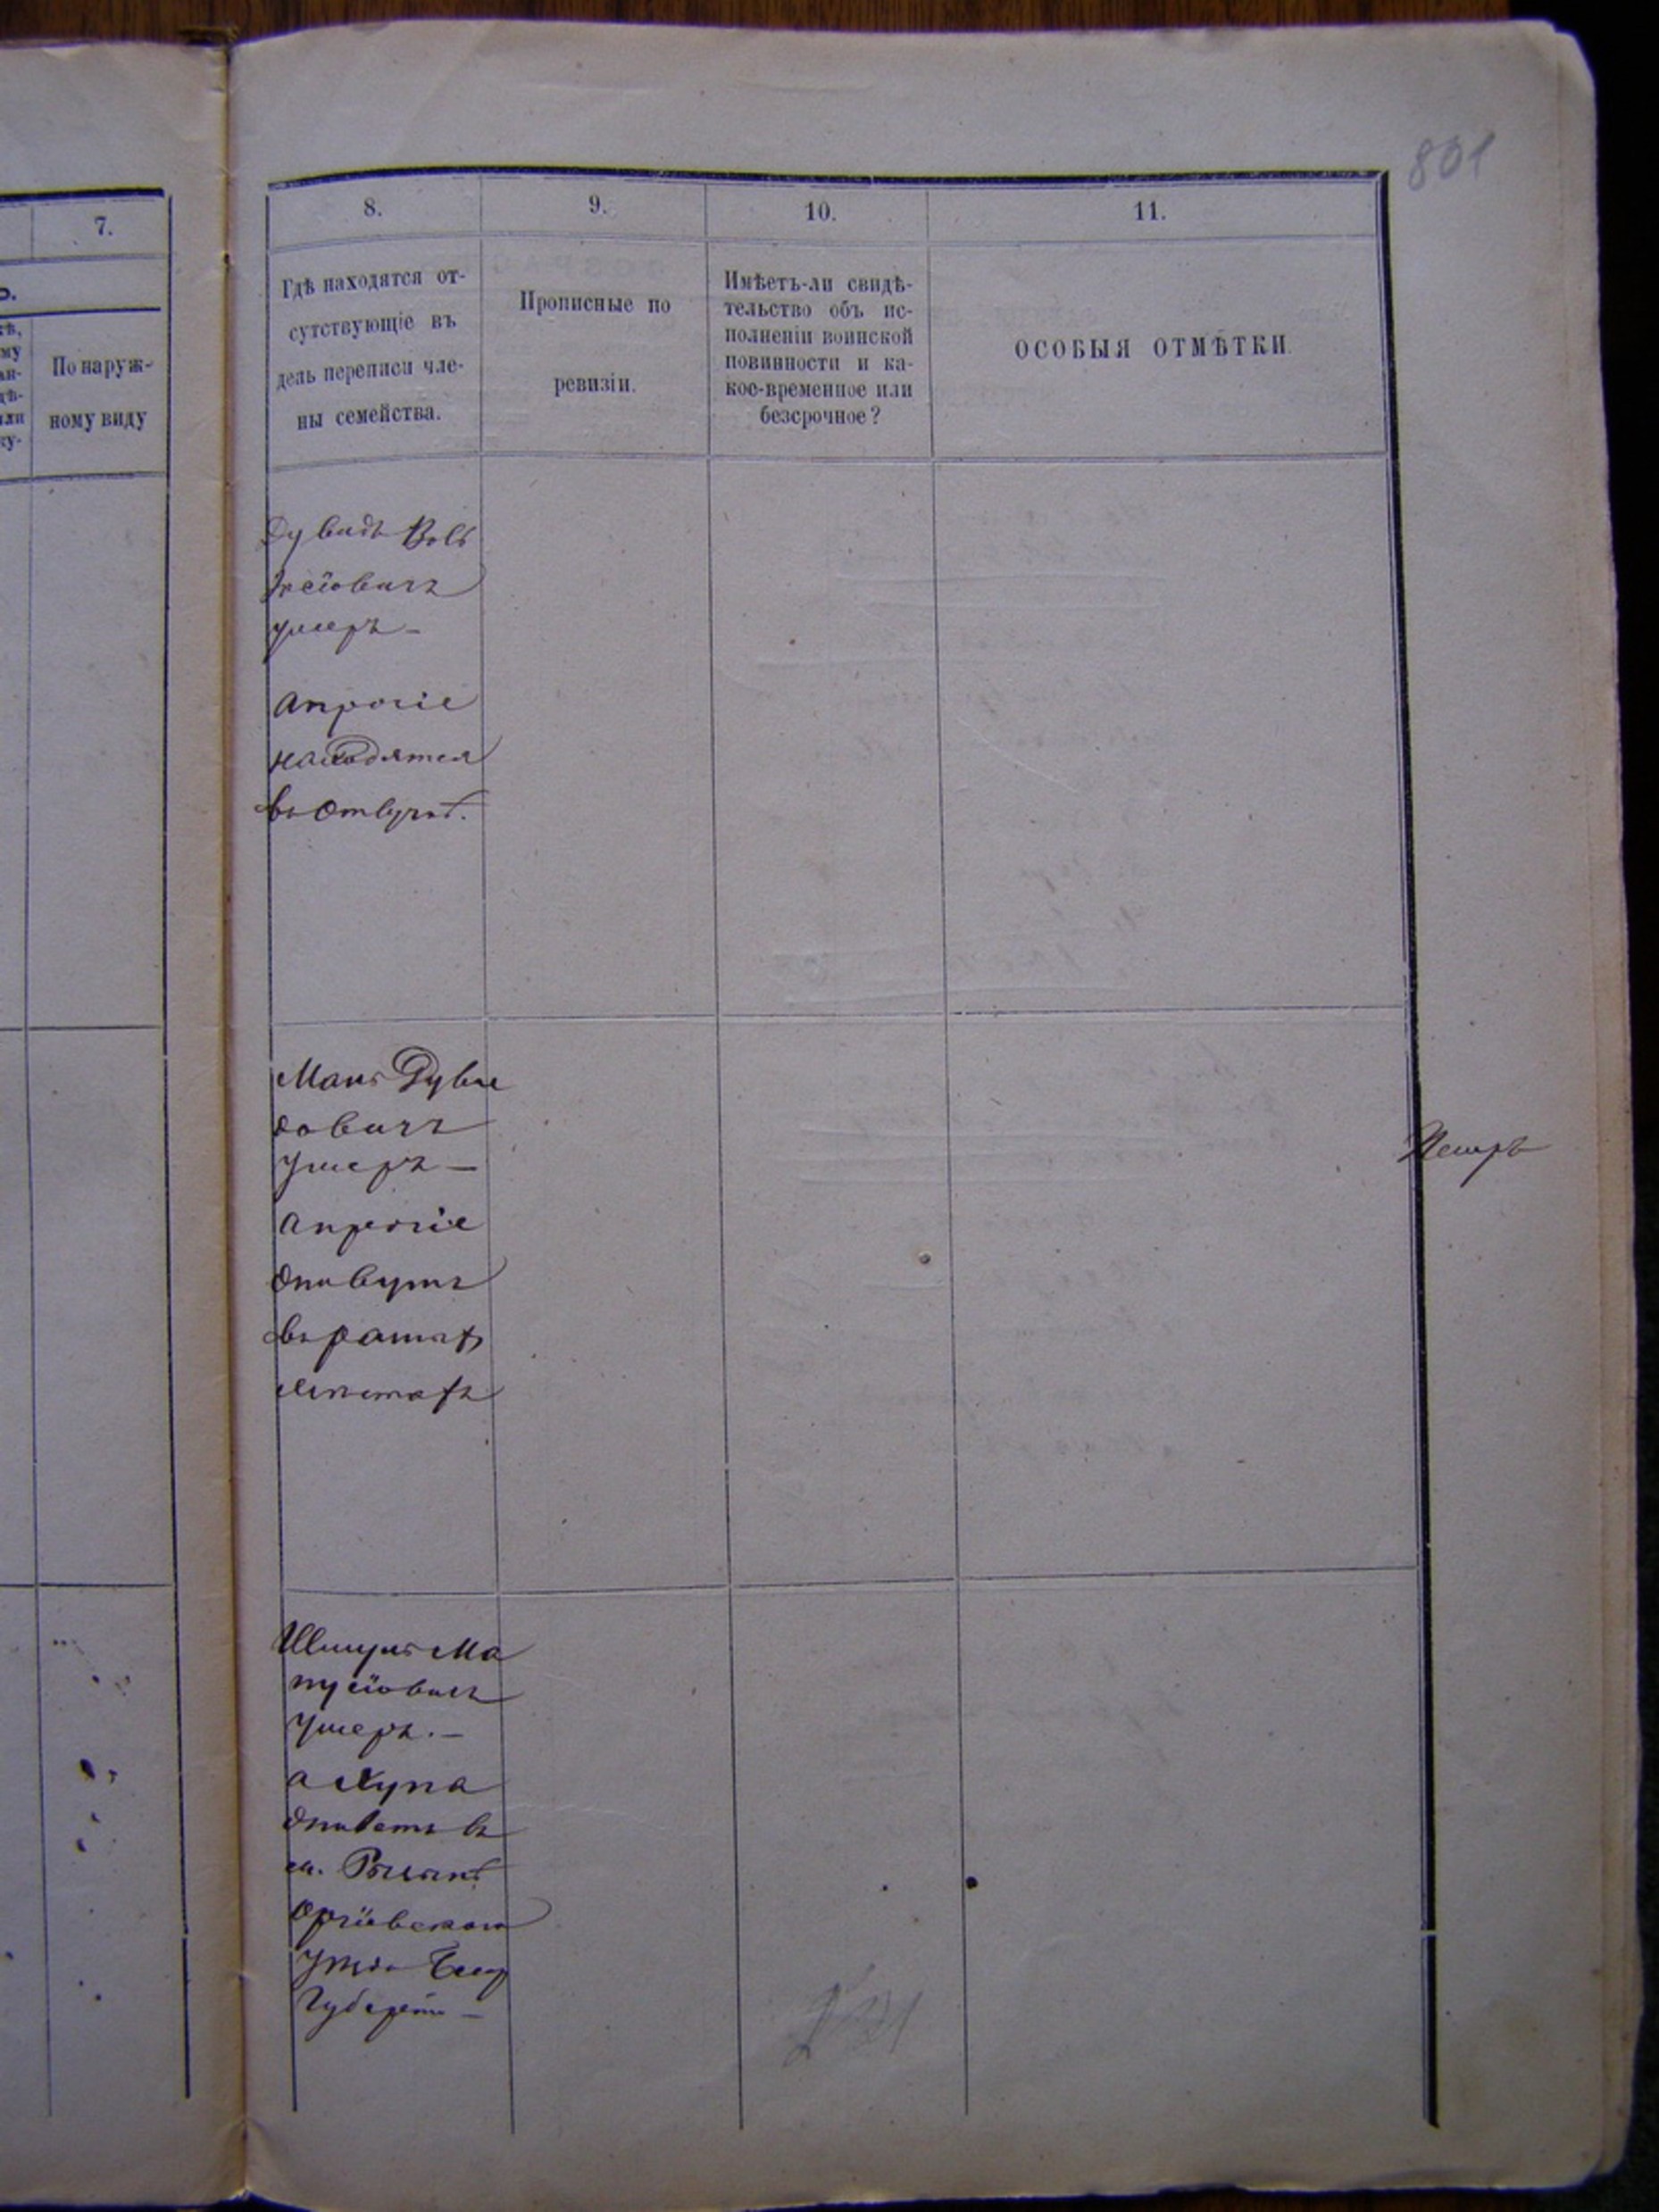 801
7.
По наруж-
ному виду
8.
9.
10.
11.
Гдѣ находятся от-
сутствующіе въ
день переписи чле-
ны семейства.
Прописные по
ревизіи.
Имѣетъ-ли свидѣ-
тельство объ ис-
полненіи воинской
повинности и ка-
кое-временное или
безсрочное?
ОСОБЫЯ ОТМѢТКИ.
Дувидъ
умеръ —
а прочіе
находятся
въ
Дуви
довичъ
умеръ —
а прочіе
живутъ
въ разныхъ
мѣстахъ
Шмуль Ма
нусіовичъ
умеръ. —
а
живетъ въ
м.
Оргіевскаго
уѣзда Бесар
Губерніи —